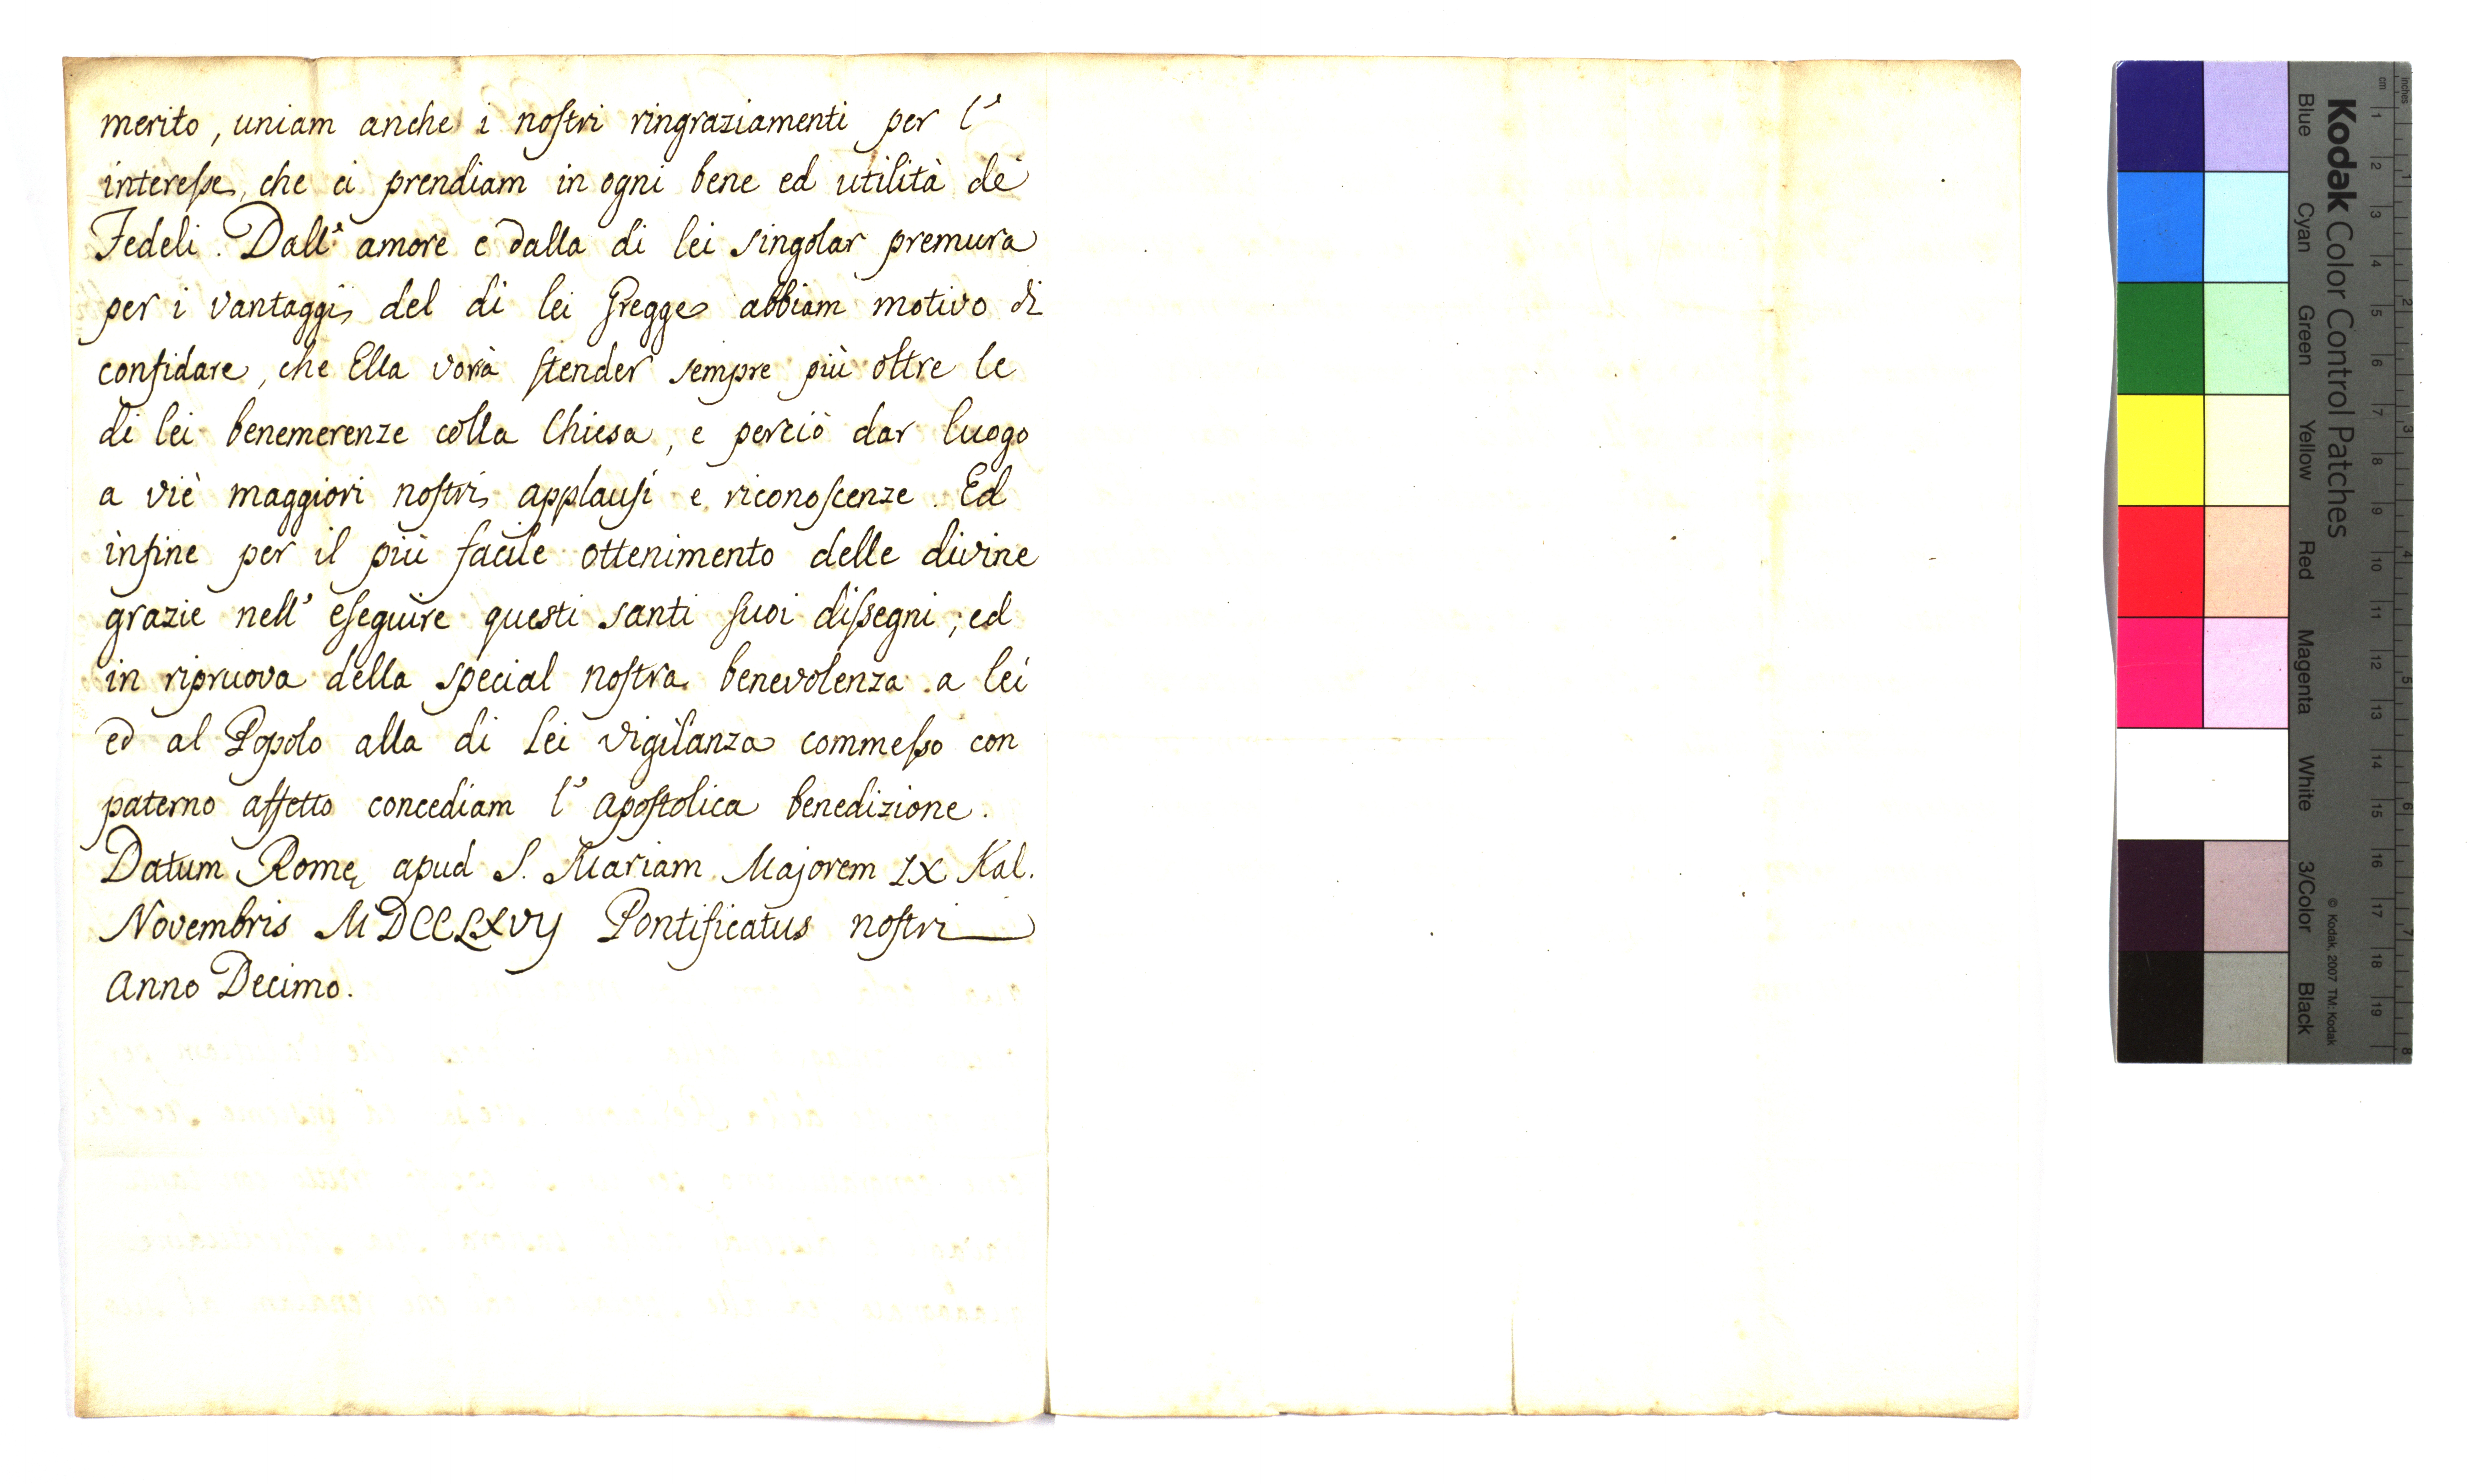 merito, uniam anche i noſtri ringraziamenti per l'
intereſse, che ci prendiam in ogni bene ed utilità de'
Fedeli. Dall' amore e dalla di lei singolar premura
per i vantaggi del di lei Gregge abbiam motivo di
confidare, che Ella vorrà ſtender sempre più oltre le
di lei benemerenze colla Chiesa, e perciò dar luogo
a viè maggiori noſtri applauſi e riconoſcenze. Ed
infine per il più facile ottenimento delle divine
grazie nell' eſeguire questi santi ſuoi diſsegni; ed
in ripruova della special noſtra benevolenza a lei
ed al Popolo alla di Lei vigilanza commeſso con
paterno affetto concediam l' apoſtolica benedizione.
Datum Romę apud S. Mariam Majorem IX Kal.
Novembris MDCCLXVIJ Pontificatus noſtri
Anno Decimo.
Kodak Color Control Patches
Blue Cyan Green Yellow Red Magenta White 3/Color Black
© Kodak, 2007 TM: Kodak
cm 1 2 3 4 5 6 7 8 9 10 11 12 13 14 15 16 17 18 19
inches 1 2 3 4 5 6 7 8